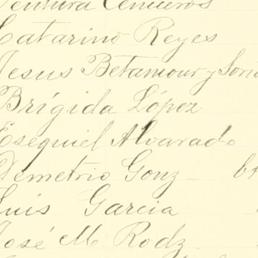 Ventura Ceniceros
Catarino Reyes
Jesus Betancour y Sons
Brígida López
Esequiel Alvarado
Demetrio Gonz
Luis Garcia
José M. Rodz